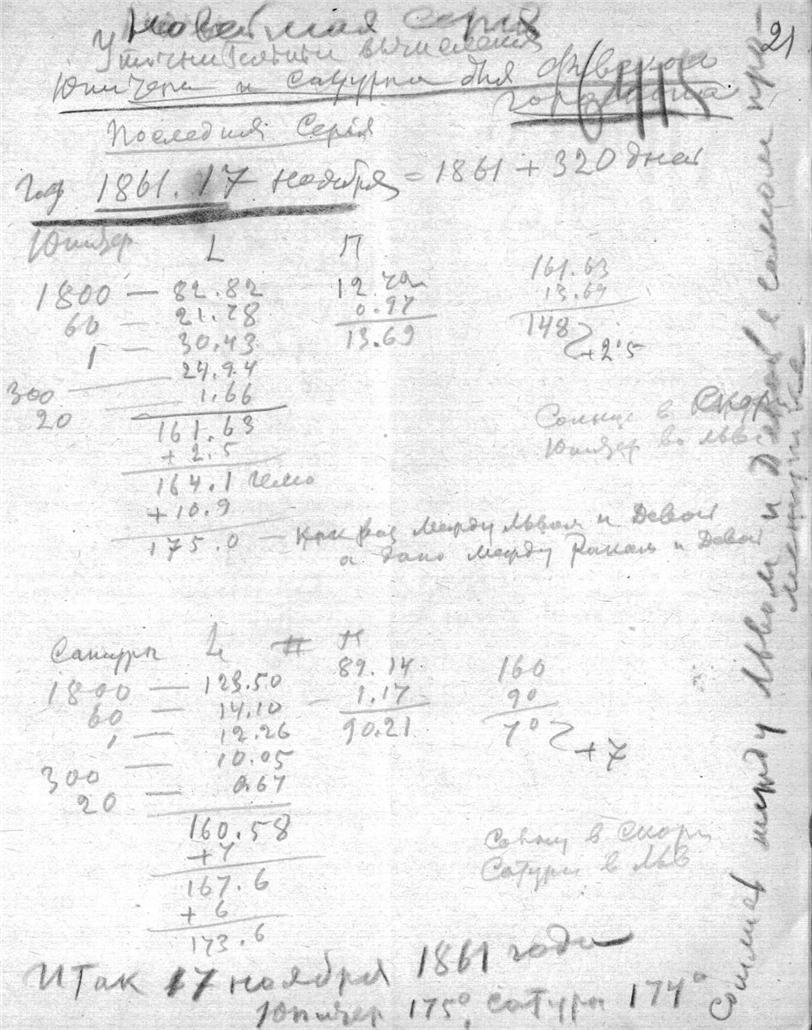 21
Новейшая серия
Уточнительные вычисления
Юпитера и Сатурна для
гороскопа
Последняя Серія
Год 1861. 17 ноября = 1861 + 320 дней
Юпитер L П
1800 — 82.82 12.72 161.63
60 — 21.78 0.97 13.69
1 — 30.43 13.69 148
24.94 +2.5
300 — 1.66
20 161.63
+ 2.5
164.1 гелио
+ 10.9
175.0 — как раз между Львом и Девой
а дано между Раком и Девой
Солнце в Скорп
Юпитер во Льве
Сатурн L П
1800 — 123.50 89.14 160
60 — 14.10 1.17 90
1 — 12.26 90.21 70
10.05 +7
300
20 — 0.67
160.58
+7
167.6
+ 6
173.6
Солнц в Скорп
Сатурн в Льв
Итак 17 ноября 1861 года
Юпитер 175°, Сатурн 174°
между Львом и Девой в самом про-
межутке